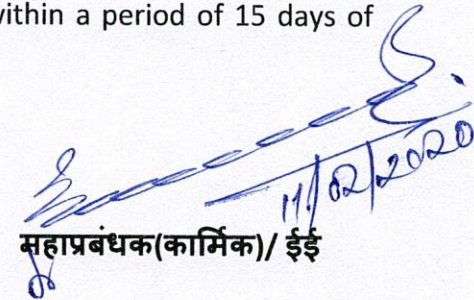 within a period of 15 days of
11/02/2020
महाप्रबंधक(कार्मिक)/ ईई